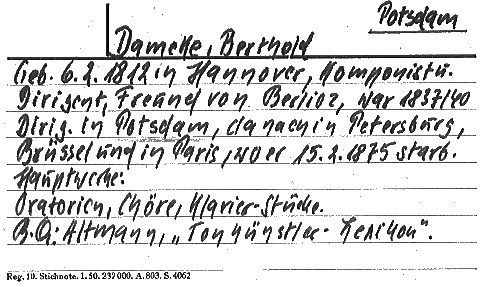 Potsdam
Damcke, Berthold
Geb. 6.2.1812 in Hannover, Komponist u.
Dirigent, Freund von Berlioz, war 1837/40
Dirig. in Potsdam, danach in Petersburg,
Brüssel und in Paris, wo er 15.2.1875 starb.
Hauptwerke:
Oratorien, Chöre, Klavier-Stücke.
B.Q.: Altmann, „Tonkünstler-Lexikon".
Reg. 10. Stichnote. 1. 50. 232000. A. 803. S. 4062